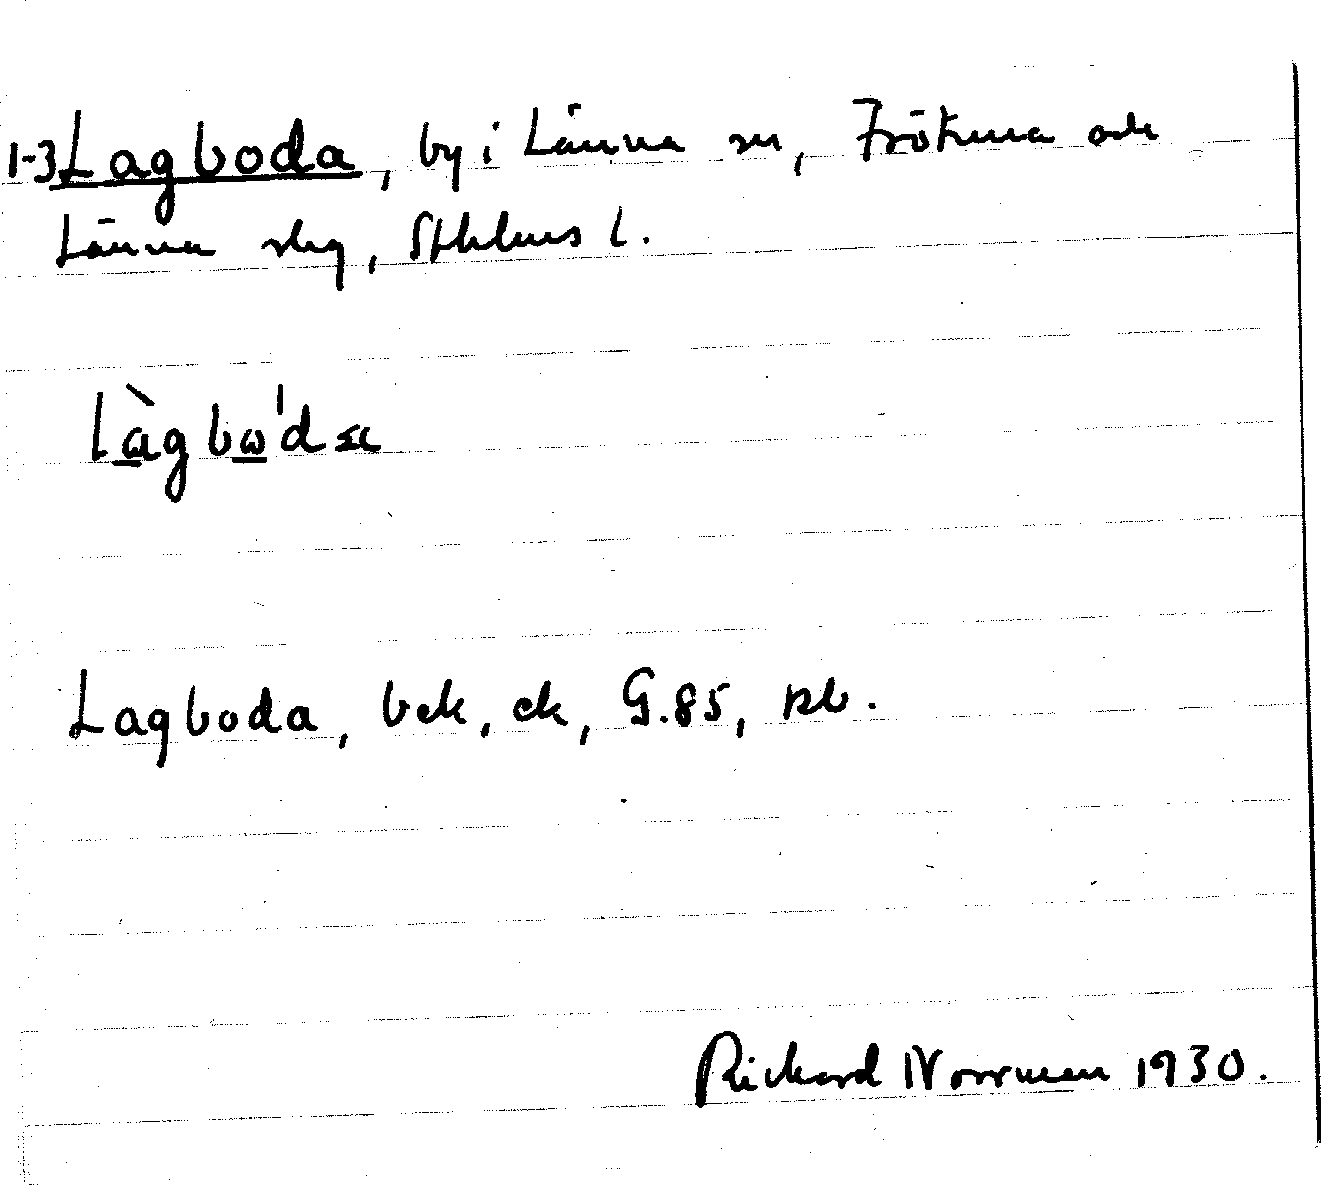 1-3 Lagboda, by i Länna sn, Frötuna och
Länna slg, Sthlms l.
làgbω'da
Lagboda, bek, ek, G.85, jsb.
Rickard Norrman 1930.